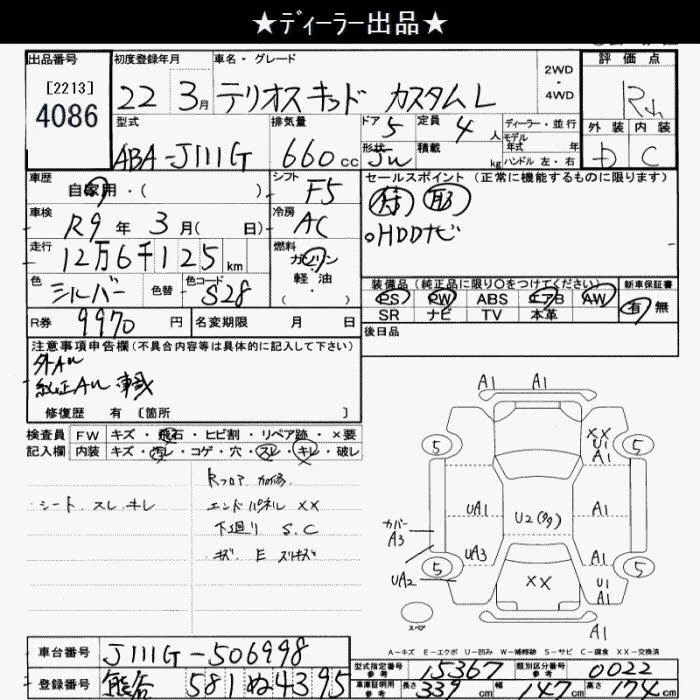 ★ディーラー出品★
出品番号
[2213]
4086
初度登録年月
22 3月
車名・グレード
テリオスキッド カスタムL
2WD
・
4WD
評価点
外装 内装
D C
型式
ABA-J111G
排気量
660cc
ドア 5
定員 4人
形状
積載 kg
ディーラー・並行
モデル
年式 年
ハンドル 左・右
車歴
自家用・( )
シフト
F5
セールスポイント (正常に機能するものに限ります)
HDDナビ
車検
R9年3月( 日)
冷房
AC
走行
12万6千125km
燃料
ガソリン
軽油
( ・ )
色
シルバー
色替
色コード
S28
装備品(純正品に限り○をつけてください)
新車保証書
PS PW ABS エアB AW
SR ナビ TV 本革
有 無
R券
9970円
名変期限 月 日
後日品
注意事項申告欄(不具合内容等は具体的に記入して下さい)
外AW
純正AW 車載
修復歴 有 [箇所 ]
検査員
記入欄
FW キズ・飛石・ヒビ割・リペア跡・×要
内装 キズ・汚レ・コゲ・穴・スレ・キレ・破レ
シート スレ キレ
Rフロア 加修
エンドパネル XX
下廻り S.C
キズ E スリキズ
A1 A1
5 XX 5
U1
A1
UA1 U2(99) A1
カバー
A3
UA3 A1
5 UA2 XX U1 5
A1
スペア
A1
A-キズ E-エクボ U-凹み W-補修跡 S-サビ C-腐食 XX-交換済
車台番号
J111G-506998
登録番号
熊谷 581 ぬ 4395
型式指定番号
参考
15367
類別区分番号
参考
0022
車庫証明用
参考
長さ 339cm 幅 147cm 高さ 174cm